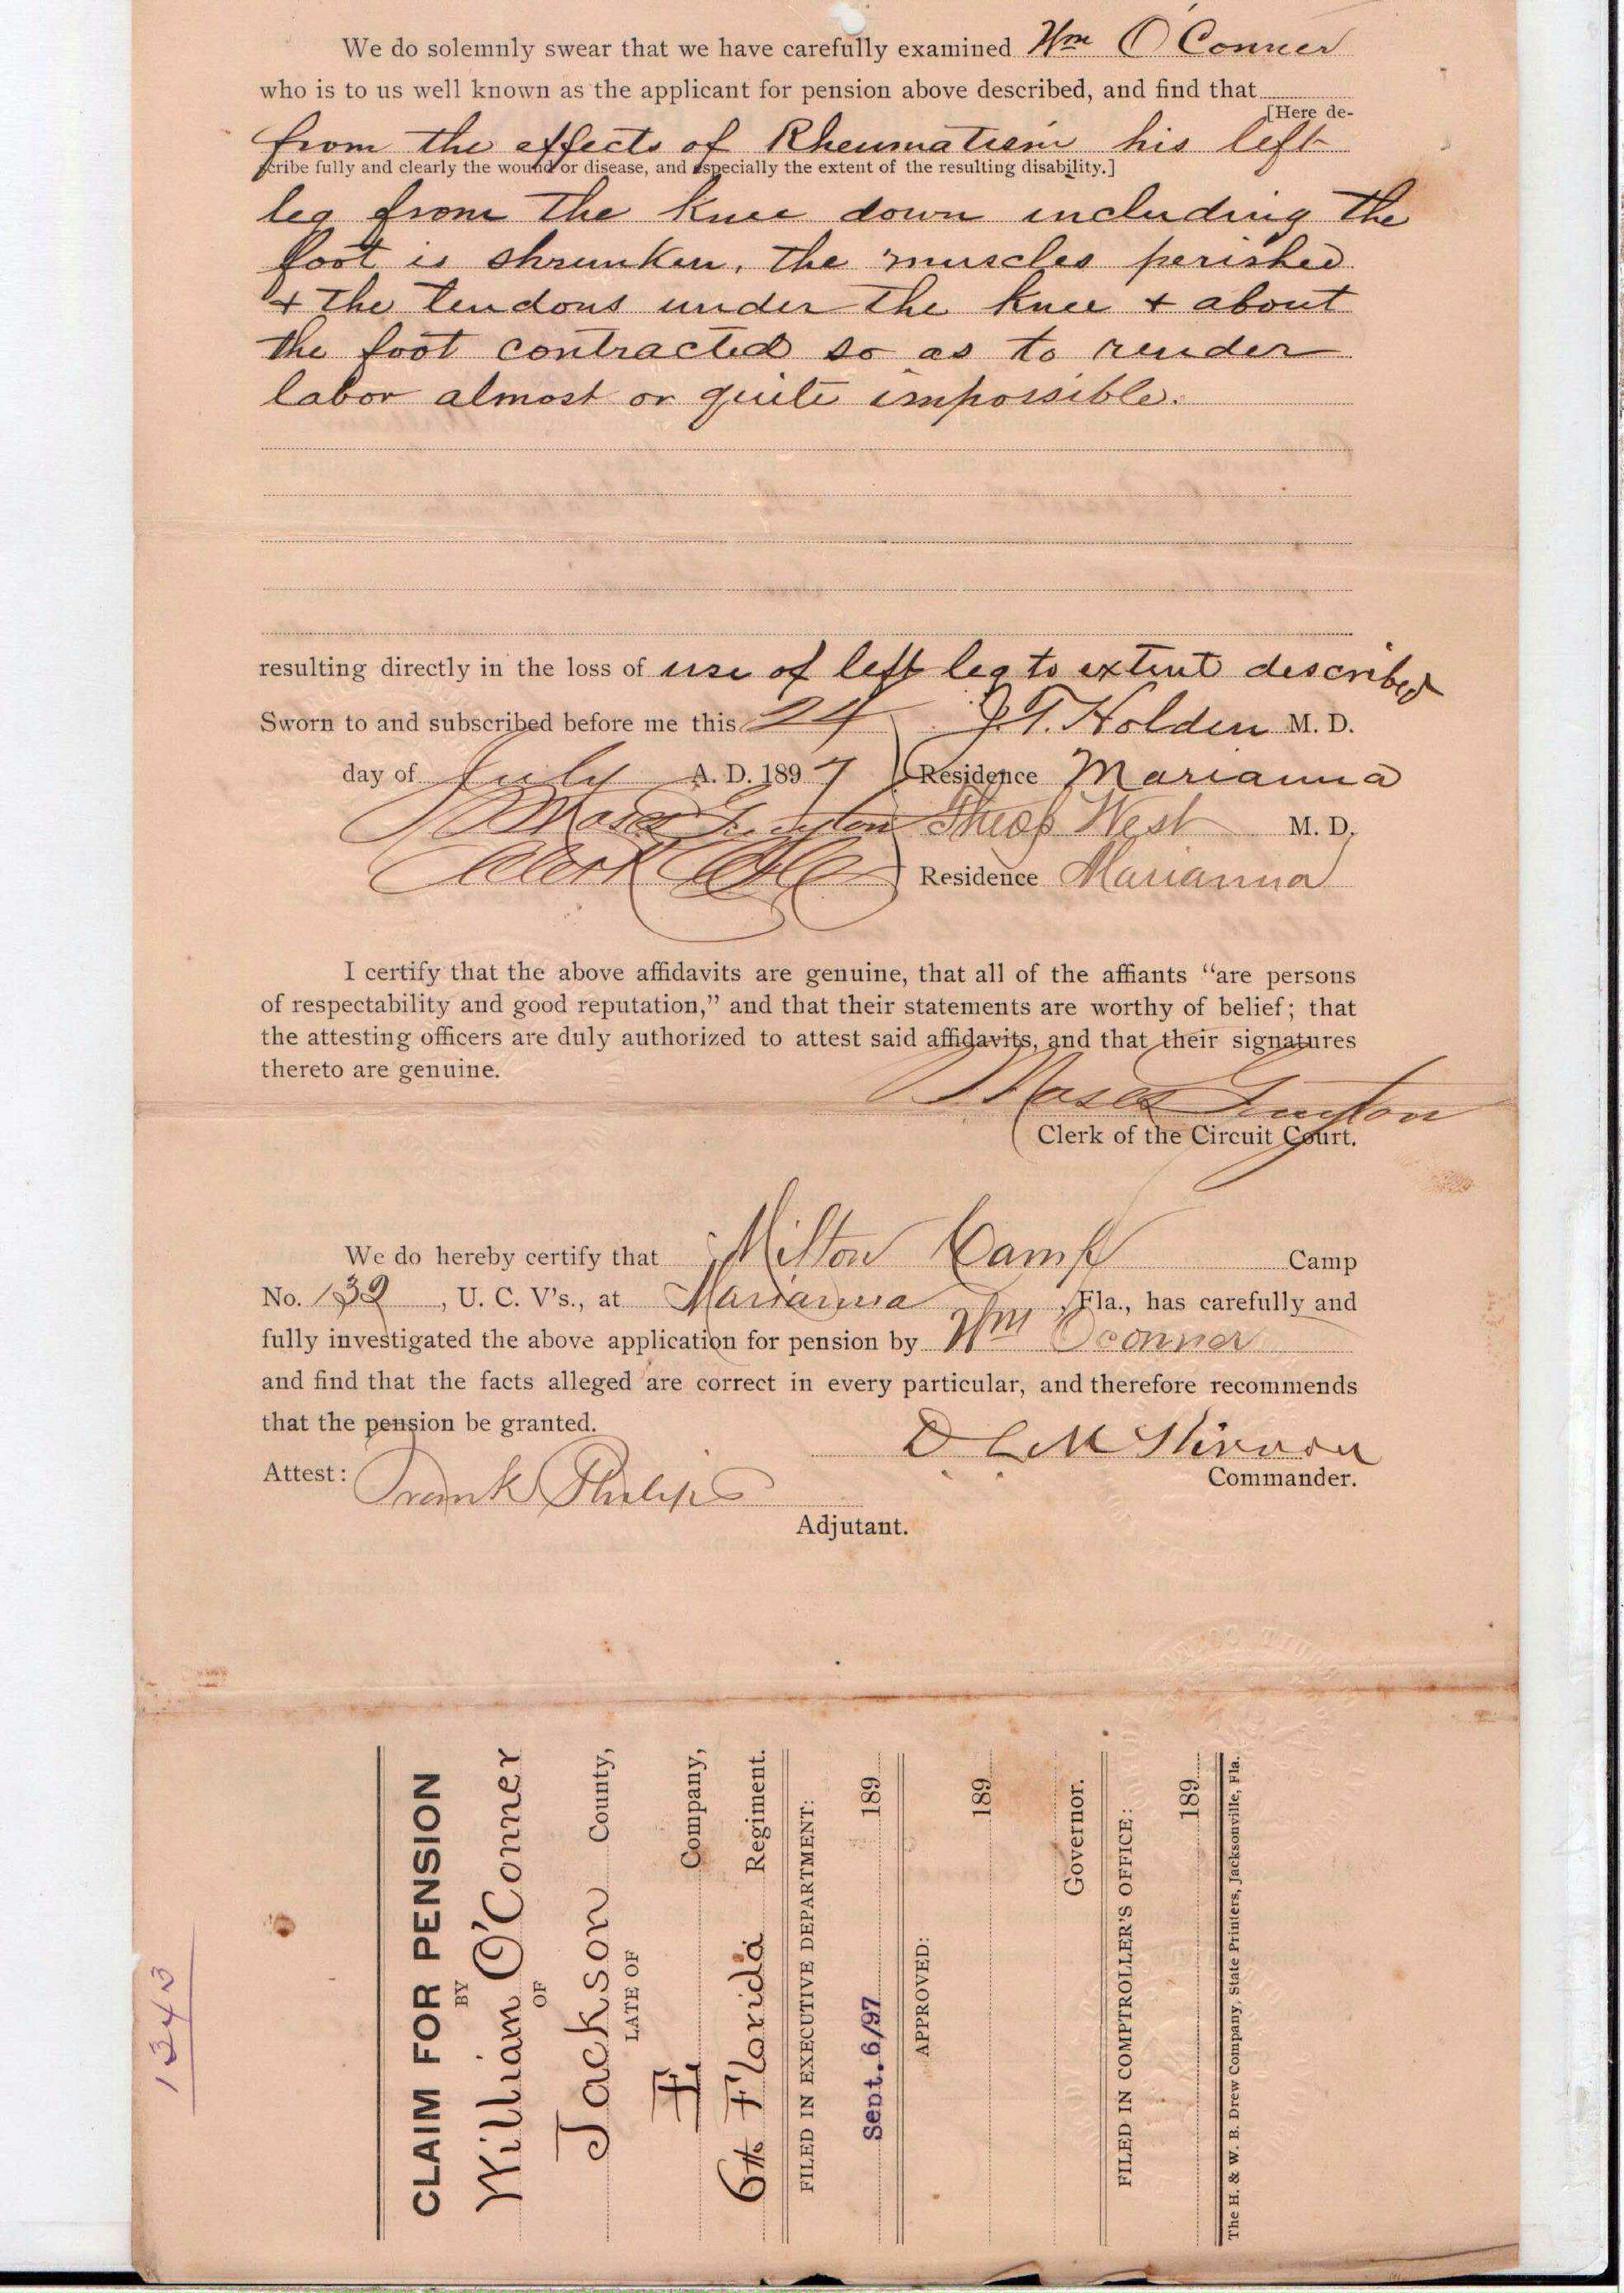 We do solemnly swear that we have carefully examined Wm O'Conner
who is to us well known as the applicant for pension above described, and find that
[Here de-
from the effects of Rheumatism his left
scribe fully and clearly the wound or disease, and especially the extent of the resulting disability.]
leg from the knee down including the
foot is shrunken, the muscles perished
+ the tendons under the knee + about
the foot contracted so as to render
labor almost or quite impossible.
resulting directly in the loss of use of left leg to extent described
Sworn to and subscribed before me this 24 J. T. Holden M. D.
day of July A. D. 1897 Residence Marianna
Moses Guyton Theop West M. D.
Clerk Residence Marianna
I certify that the above affidavits are genuine, that all of the affiants "are persons
of respectability and good reputation," and that their statements are worthy of belief; that
the attesting officers are duly authorized to attest said affidavits, and that their signatures
thereto are genuine.
Moses Guyton
Clerk of the Circuit Court.
We do hereby certify that Milton Camp Camp
No. 132, U. C. V's., at Marianna, Fla., has carefully and
fully investigated the above application for pension by Wm Oconner
and find that the facts alleged are correct in every particular, and therefore recommends
that the pension be granted.
D L McKinnon
Commander.
Attest: Frank Philips
Adjutant.
1343
CLAIM FOR PENSION
BY
William O'Conner
OF
Jackson County,
LATE OF
Company,
6th Florida Regiment.
FILED IN EXECUTIVE DEPARTMENT:
Sept. 6/97 189
APPROVED:
189
Governor.
FILED IN COMPTROLLER'S OFFICE:
189
The H. & W. B. Drew Company, State Printers, Jacksonville, Fla.